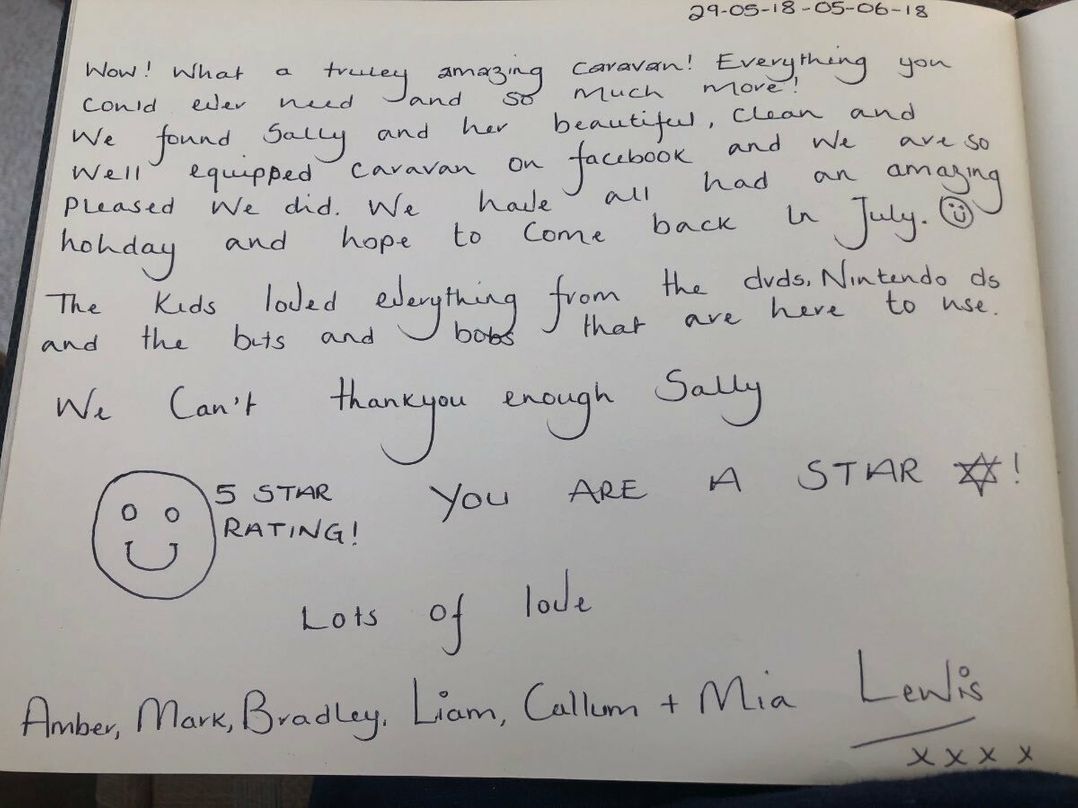 29-05-18-05-06-18
Wow! What a truley amazing caravan! Everything you
could ever need and so much more!
We found Sally and her beautiful, clean and
well equipped caravan on facebook and we are so
pleased we did. We have all had an amazing
holiday and hope to come back in July.
The kids loved everything from the dvds, Nintendo ds
and the bits and bobs that are here to use.
We Can't thankyou enough Sally
5 STAR
RATING!
YOU ARE A STAR !
Lots of love
Amber, Mark, Bradley, Liam, Callum + Mia Lewis
x x x x